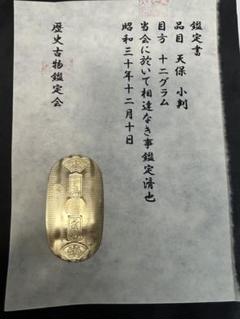 鑑定書
品目 天保 小判
目方 十二グラム
当会に於いて相違なき事鑑定済也
昭和三十年十二月十日
歴史古物鑑定会